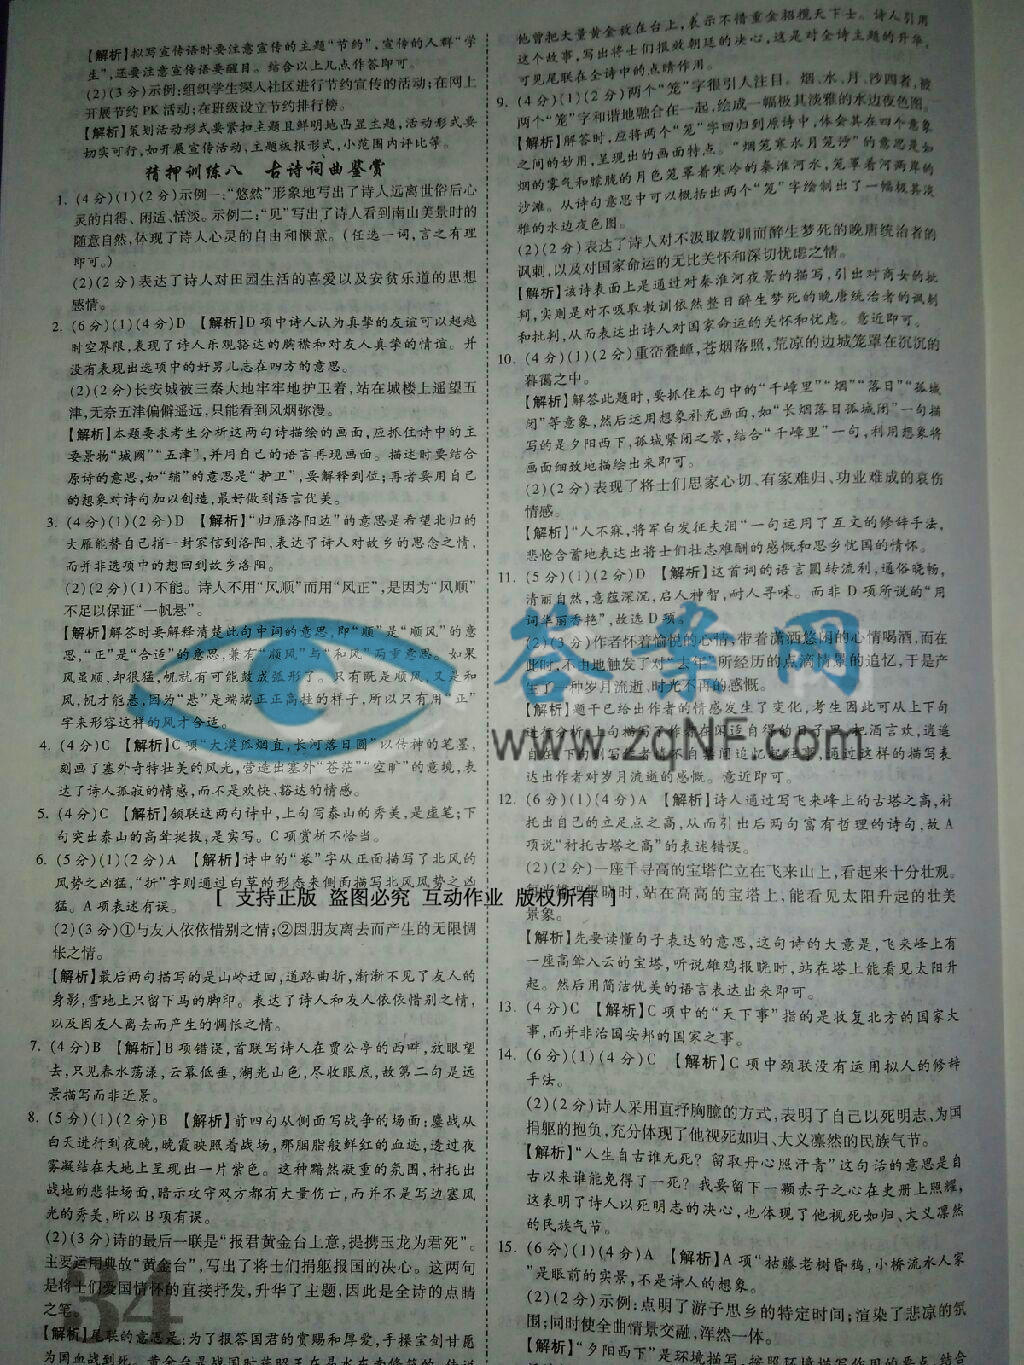 【解析】拟写宣传语时要注意宣传的主题"节约",宣传的人群"学
生",还要注意宣传语要醒目。结合以上几点作答即可。
(2)(3分)示例:组织学生深入社区进行节约宣传的活动;在网上
开展节约PK活动;在班级设立节约排行榜。
【解析】策划活动形式要紧扣主题且鲜明地凸显主题,活动形式要
切实可行,如开展宣传活动、主题板报形式,小范围内评比等。
猜押训练八 古诗词曲鉴赏
1. (4分)(1)(2分)示例一:"悠然"形象地写出了诗人远离世俗后心
灵的自得、闲适、恬淡。示例二:"见"写出了诗人看到南山美景时的
随意自然,体现了诗人心灵的自由和惬意。(任选一词,言之有理
即可。)
(2)(2分)表达了诗人对田园生活的喜爱以及安贫乐道的思想
感情。
2. (6分)(1)(4分)D 【解析】D项中诗人认为真挚的友谊可以超越
时空界限,表现了诗人乐观豁达的胸襟和对友人真挚的情谊。并
没有表现出选项中的好男儿志在四方的意思。
(2)(2分)长安城被三秦大地牢牢地护卫着,站在城楼上遥望五
津,无奈五津偏僻遥远,只能看到风烟弥漫。
【解析】本题要求考生分析这两句诗描绘的画面,应抓住诗中的主
要景物"城阙""五津",并用自己的语言再现画面。描述时要结合
原诗的意思,如"辅"的意思是"护卫",要解释到位;再者要用自己
的想象对诗句加以创造,最好做到语言优美。
3. (4分)(1)(2分)D 【解析】"归雁洛阳边"的意思是希望北归的
大雁能替自己捎一封家信到洛阳,表达了诗人对故乡的思念之情,
而并非选项中的想回到故乡洛阳。
(2)(2分)(1)不能。诗人不用"风顺"而用"风正",是因为"风顺"
不足以保证"一帆悬"。
【解析】解答时要解释清楚此句中词的意思,即"顺"是"顺风"的意
思,"正"是"合适"的意思,兼有"顺风"与"和风"两重意思。如果
风虽顺,却很猛,帆就有可能鼓成弧形了。只有既是顺风,又是和
风,帆才能悬,因为"悬"是端端正正高挂的样子,所以只有用"正"
字来形容这样的风才合适。
4. (4分)C 【解析】C项"大漠孤烟直,长河落日圆"以传神的笔墨,
刻画了塞外奇特壮美的风光,营造出塞外"苍茫""空旷"的意境,表
达了诗人孤寂的情感,而不是欢快、豁达的情感。
5. (4分)C 【解析】颔联这两句诗中,上句写泰山的秀美,是虚笔;下
句突出泰山的高耸挺拔,是实写。C项赏析不恰当。
6. (5分)(1)(2分)A 【解析】诗中的"卷"字从正面描写了北风的
风势之凶猛,"折"字则通过白草的形态来侧面描写北风风势之凶
猛。A项表述有误。
(2)(3分)①与友人依依惜别之情;②因朋友离去而产生的无限惆
怅之情。
【解析】最后两句描写的是山岭迂回,道路曲折,渐渐不见了友人的
身影,雪地上只留下马的脚印。表达了诗人和友人依依惜别之情,
以及因友人离去而产生的惆怅之情。
7. (4分)B 【解析】B项错误,首联写诗人在贾公亭的西畔,放眼望
去,只见春水荡漾,云幕低垂,湖光山色,尽收眼底,故第二句是远
景描写而非近景。
8. (5分)(1)(2分)B 【解析】前四句从侧面写战争的场面:鏖战从
白天进行到夜晚,晚霞映照着战场,那胭脂般鲜红的血迹,透过夜
雾凝结在大地上呈现出一片紫色。这种黯然凝重的氛围,衬托出
战地的悲壮场面,暗示攻守双方都有大量伤亡,而并不是写边塞风
光的秀美,所以B项有误。
(2)(3分)诗的最后一联是"报君黄金台上意,提携玉龙为君死"。
主要运用典故"黄金台",写出了将士们捐躯报国的决心。这两句
是将士们爱国情怀的直接抒发,升华了主题,因此是全诗的点睛
之笔。
【解析】尾联的意思是:为了报答国君的赏赐和厚爱,手操宝剑甘愿
34
他曾把大量黄金放在台上,表示不惜重金招揽天下士。诗人引用
这个故事,写出将士们报效朝廷的决心,这是对全诗主题的升华,
可见尾联在全诗中的点睛作用。
9. (4分)(1)(2分)两个"笼"字很引人注目。烟、水、月、沙四者,被
两个"笼"字和谐地融合在一起,绘成一幅极其淡雅的水边夜色图。
【解析】解答时,应将两个"笼"字回归到原诗中,体会其在四个意象
之间的妙用,呈现出的画面特点。"烟笼寒水月笼沙"的意思是如
烟的雾气和朦胧的月色笼罩着寒冷的秦淮河水,笼罩着河两岸的
沙滩。从诗句意思中可以概括出两个"笼"字绘制出了一幅极其淡
雅的水边夜色图。
(2)(2分)表达了诗人对不汲取教训而醉生梦死的晚唐统治者的
讽刺,以及对国家命运的无比关怀和深切忧虑之情。
【解析】该诗表面上是通过对秦淮河夜景的描写,引出对商女的批
判,实则是对不吸取教训依然整日醉生梦死的晚唐统治者的讽刺
和批判,从而表达出诗人对国家命运的关怀和忧虑。意近即可。
10. (4分)(1)(2分)重峦叠嶂,苍烟落照,荒凉的边城笼罩在沉沉的
暮霭之中。
【解析】解答此题时,要抓住本句中的"千嶂里""烟""落日""孤城
闭"等意象,然后运用想象补充画面,如"长烟落日孤城闭"一句描
写的是夕阳西下,孤城紧闭之景,结合"千嶂里"一句,利用想象将
画面细致地描绘出来即可。
(2)(2分)表现了将士们思家心切、有家难归、功业难成的哀伤
情感。
【解析】"人不寐,将军白发征夫泪"一句运用了互文的修辞手法,
悲怆含蓄地表达出将士们壮志难酬的感慨和思乡忧国的情怀。
11. (5分)(1)(2分)D 【解析】这首词的语言圆转流利,通俗晓畅,
清丽自然,意蕴深沉,启人神智,耐人寻味。而非D项所说的"用
词华丽香艳",故选D项。
(2)(3分)作者怀着愉悦的心情,带着潇洒悠闲的心情喝酒,而在
此时,不由地触发了对"去年"所经历的点滴情景的追忆,于是产
生了一种岁月流逝,时光不再的感慨。
【解析】题干已给出作者的情感发生了变化,考生因此可从上下句
达出作者对岁月流逝的感慨。意近即可。
12. (6分)(1)(4分)A 【解析】诗人通过写飞来峰上的古塔之高,衬
托出自己的立足点之高,从而引出后两句富有哲理的诗句,故A
项说"衬托古塔之高"的表述错误。
(2)(2分)一座千寻高的宝塔伫立在飞来山上,看起来十分壮观。
报晓时,站在高高的宝塔上,能看见太阳升起的壮美
景象。
【解析】先要读懂句子表达的意思,这句诗的大意是,飞来峰上有
一座高耸入云的宝塔,听说雄鸡报晓时,站在塔上能看见太阳升
起。然后用简洁优美的语言表达出来即可。
13. (4分)C 【解析】C项中的"天下事"指的是收复北方的国家大
事,而并非治国安邦的国家之事。
14. (6分)(1)(4分)C 【解析】C项中颈联没有运用拟人的修辞
手法。
(2)(2分)诗人采用直抒胸臆的方式,表明了自己以死明志、为国
捐躯的抱负,充分体现了他视死如归、大义凛然的民族气节。
【解析】"人生自古谁无死?留取丹心照汗青"这句话的意思是自
古以来谁能免得了一死?我要留下一颗赤子之心在史册上照耀,
这表明了诗人以死明志的决心,也体现了他视死如归、大义凛然
的民族气节。
15. (6分)(1)(4分)A 【解析】A项"枯藤老树昏鸦,小桥流水人家
"是眼前的实景,不是诗人的想象。
(2)(2分)示例:点明了游子思乡的特定时间;渲染了悲凉的氛
围;同时使全曲情景交融,浑然一体。
答案网
www.zqnf.com
[ 支持正版 盗图必究 互动作业 版权所有 ]